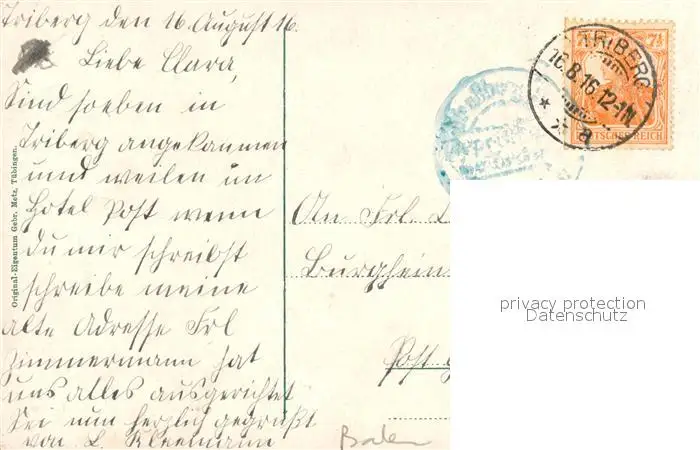 Triberg den 16. August 16.
Liebe Clara,
Sind soeben in
Triberg angekommen
und weilen im
Hotel Post wenn
du mir schreibst
schreibe meine
alte Adresse Frl
Zimmermann hat
uns alles ausgerichtet
Sei nun herzlich gegrüßt
von L. Kleemann
Original-Eigentum Gebr. Metz, Tübingen.
TRIBERG
16.8.16.12-1N
* a
7½
DEUTSCHES REICH
An Frl.
Burghein
Post
Baden
privacy protection
Datenschutz